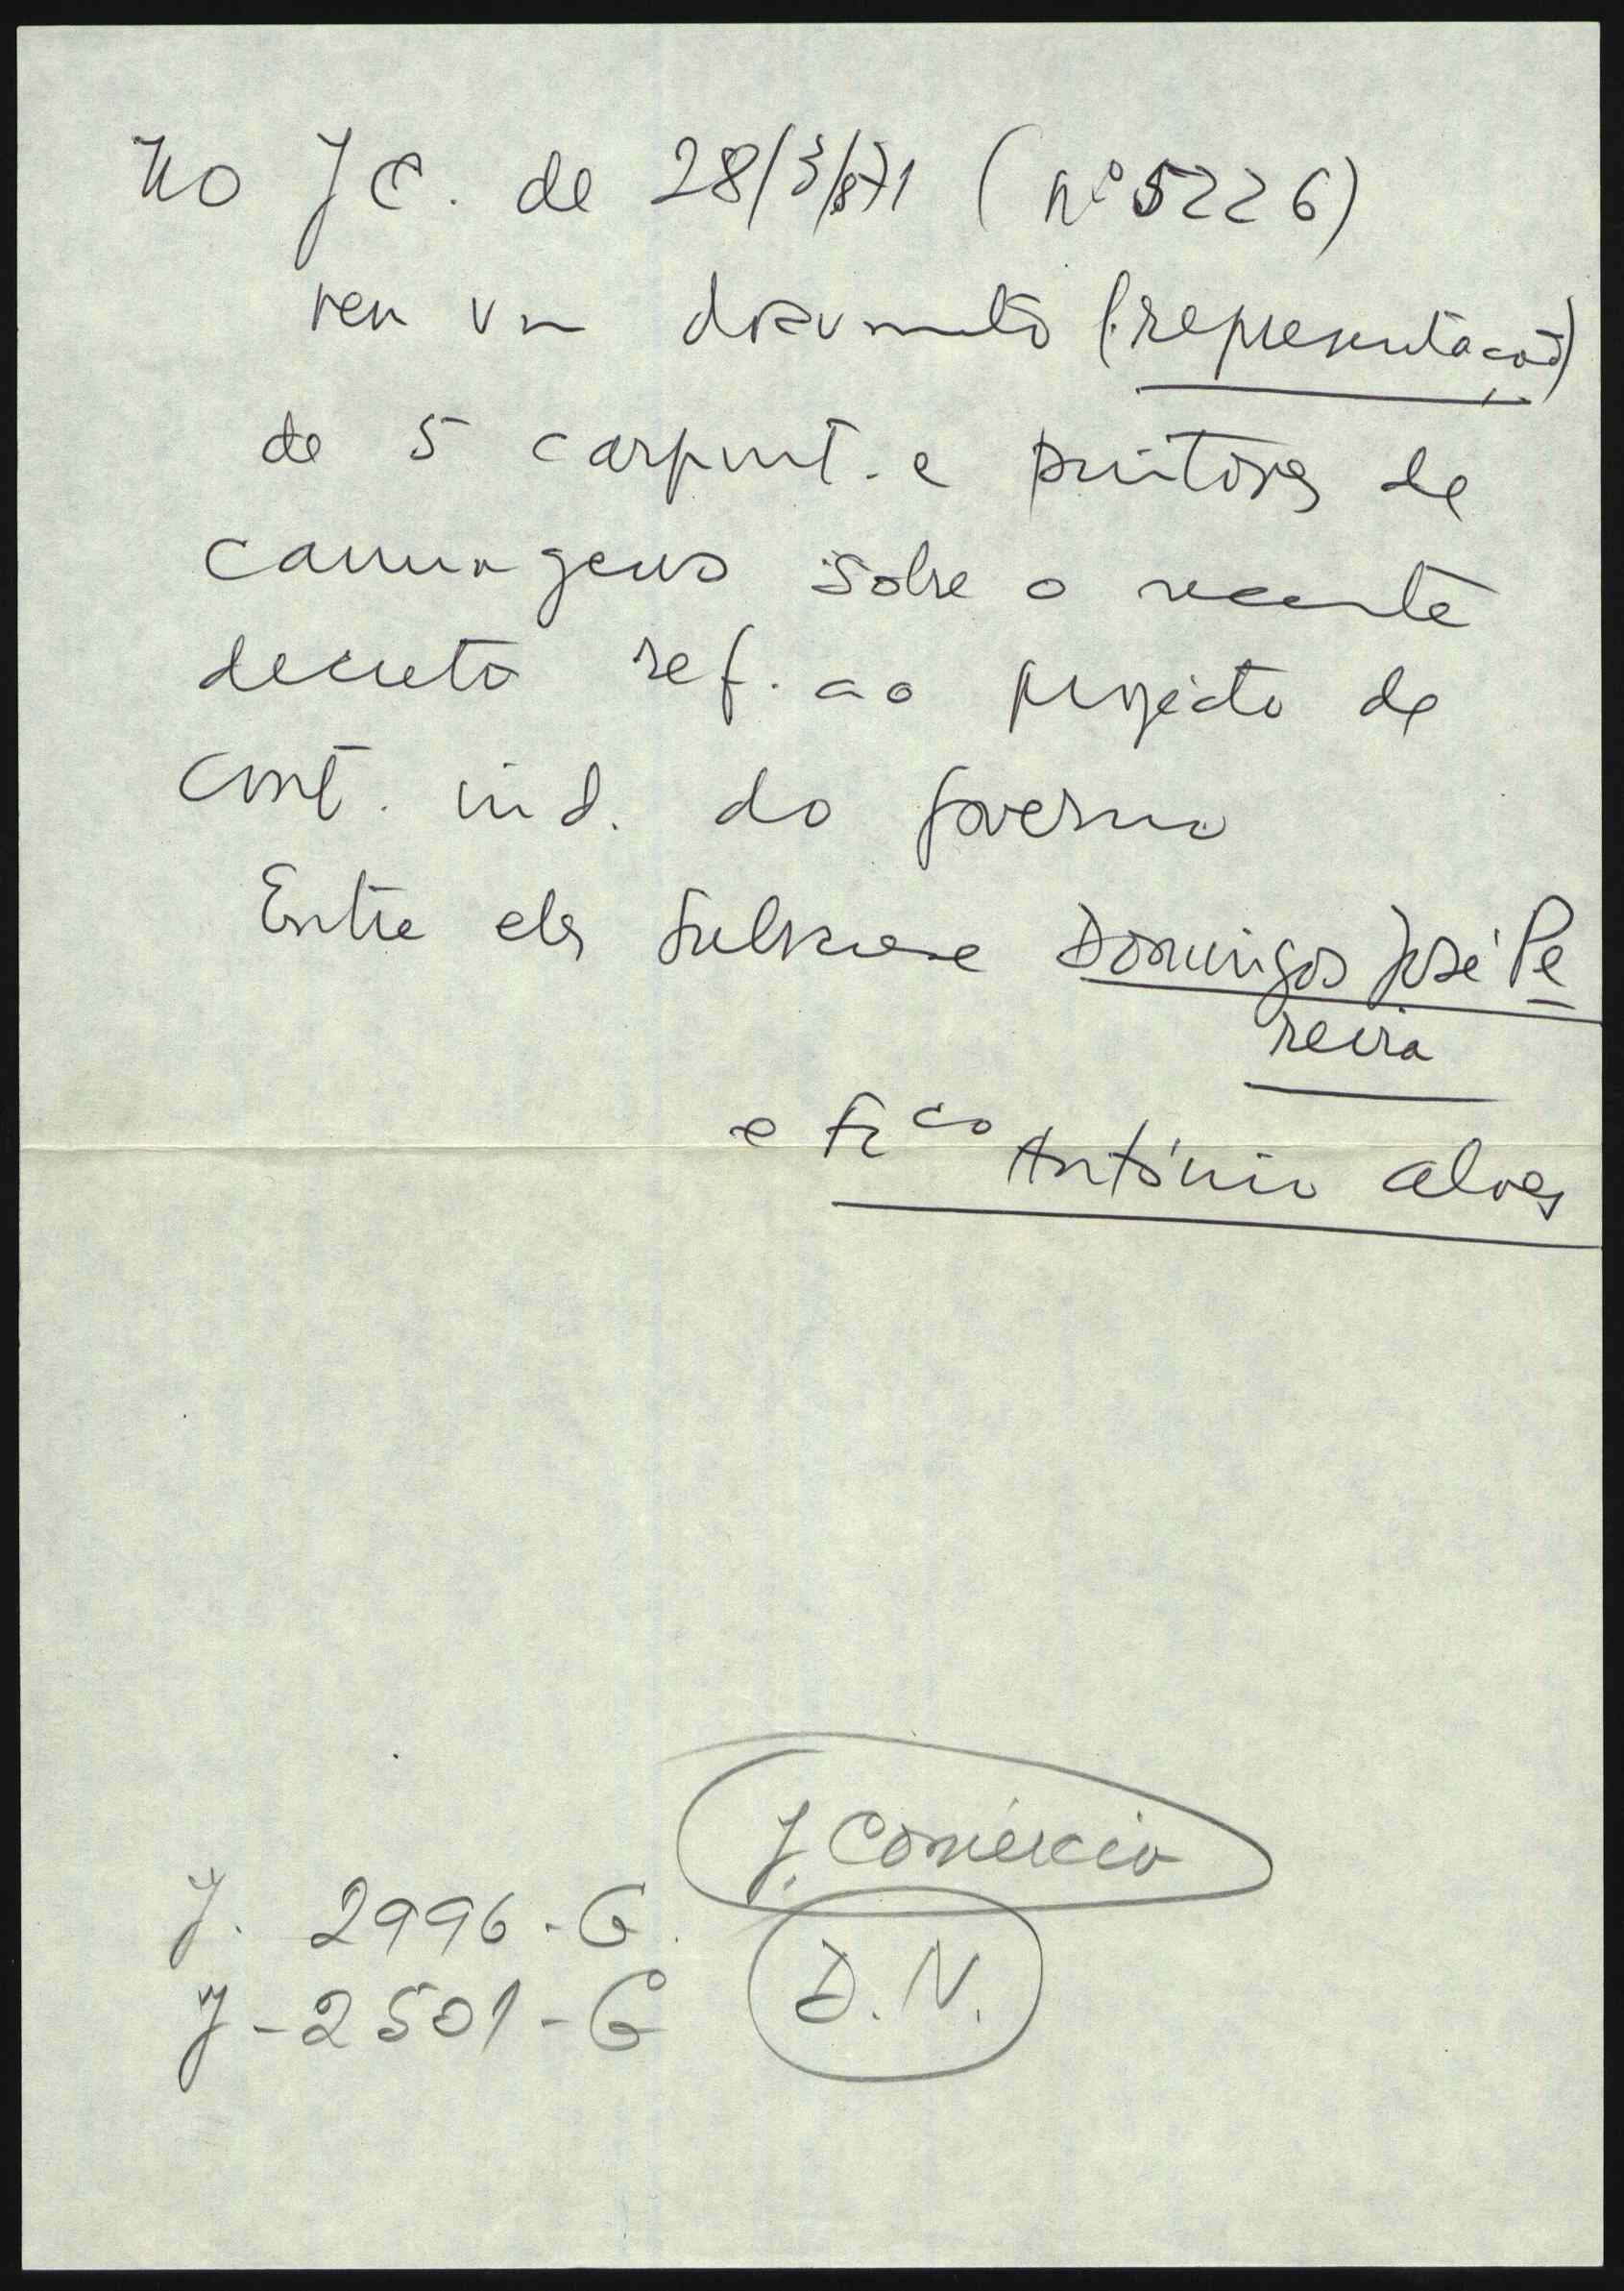 No J C. de 28/3/871 (nº 5226)
vem um documento (representação)
de 5 carpint. e pintores de
carruagens sobre o recente
decreto ref. ao projecto de
cont. ind. do governo
Entre eles subscreve Domingos José Pe
reira
e Frco António Alves
J. Comércio
J. 2996-G.
D. N.
J-2501-G